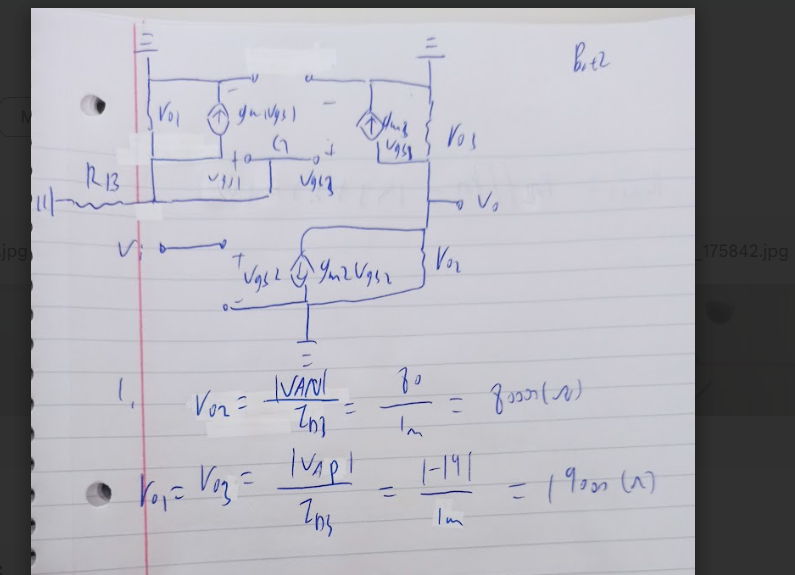 Bit2
ro1
gm1vgs1
gm3
vgs3
ro3
G
RB
+
vgs1
+
vgs3
Vo
Vi
+
vgs2
gm2vgs2
ro2
1.
ro2 = |VAN| / ID3 = 80 / 1m = 8000(Ω)
ro1 = ro3 = |VAP| / ID3 = |-19| / 1m = 19000(Ω)
_175842.jpg